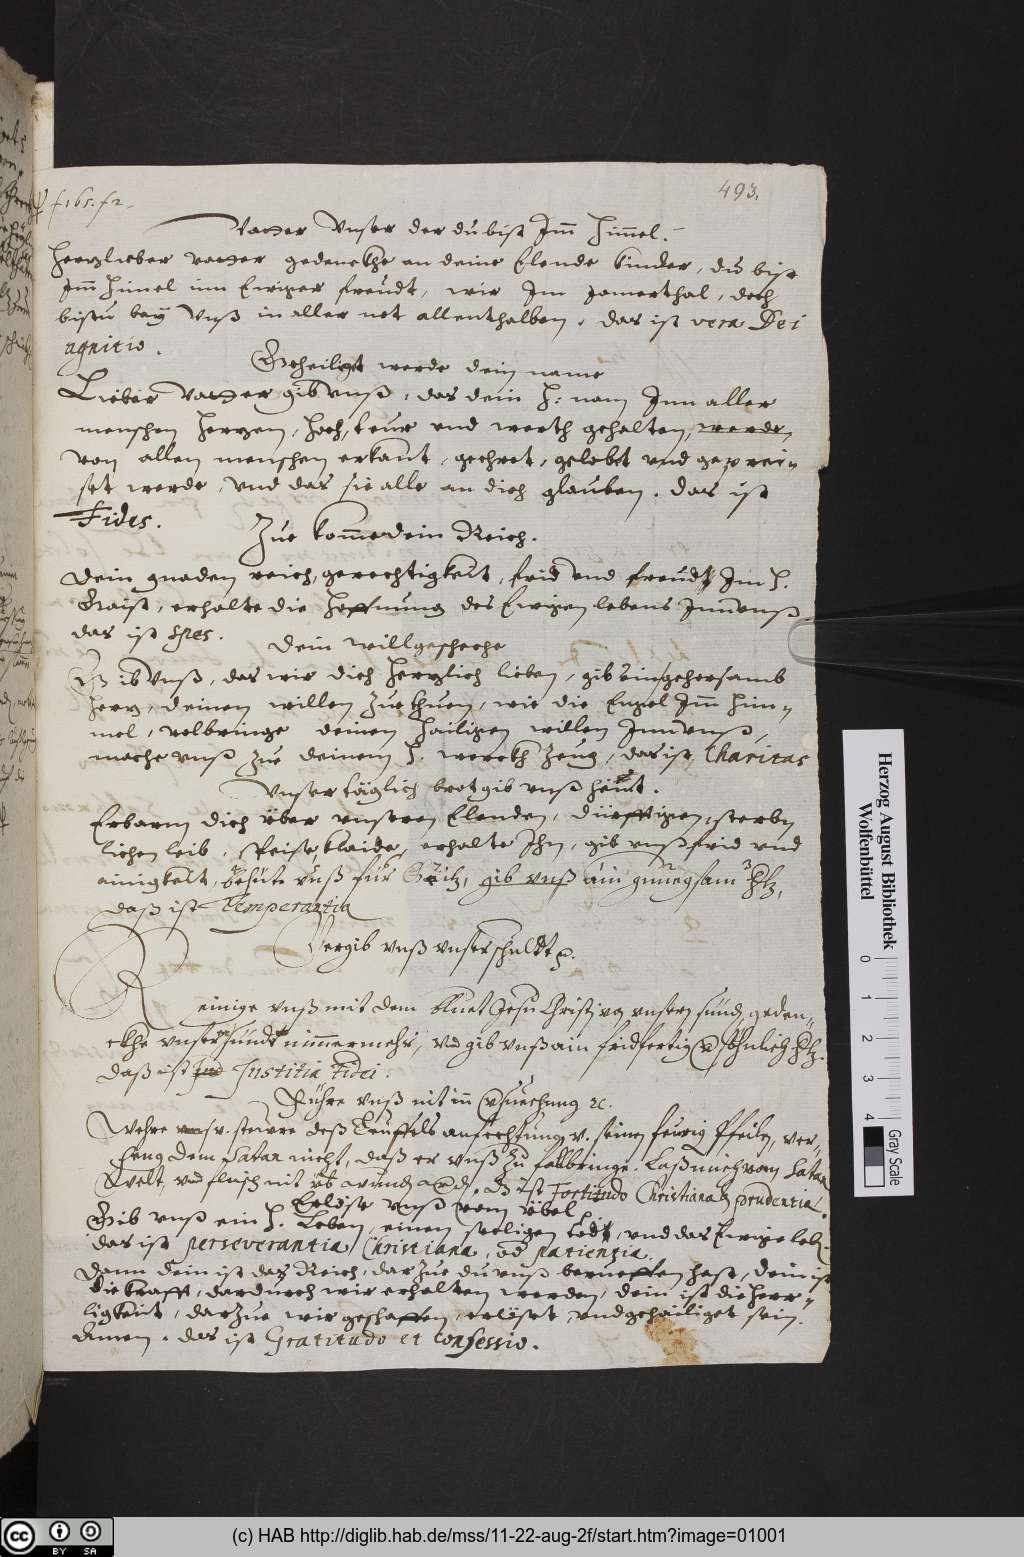 493.
f165. f2.
Vatter Vnser der du bist Im̄ Him̄el.
Hertzlieber vatter gedenckhe an deine Elende kinder, du bist
Im̄ Himel inn Ewiger freudt, wir Im Jamerthal, doch
bistu bey Vnß in aller not allenthalben. das ist vera Dei
agnitio.
Geheiligt werde dein name
Lieber Vatter gib vnß, das dein H: nam Inn aller
menschen Hertzen, Hoch, teur vnd werth gehalten, werde,
von allen menschen erkant, geehret, gelobt vnd geprei=
set werde, Vnd das sie alle an dich glauben. das ist
Fides.
Zue kom̄e dein Reich.
Dein gnaden reich, gerechtigkeit, frid vnd freudt Im H.
Gaist, erhalte die Hoffnung des Ewigen lebens Inn vnß
das ist spes.
Dein will geschehe
Gib Vnß, das wir dich Hertzlich lieben, gib ein gehorsamb
Hertz, deinen willen Zue thuen, wie die Engel Im̄ Him=
mel, volbringe deinen Hailigen willen Inn vnß,
mache vnß Zue deinem H. werckh Zeug, das ist Charitas
Vnser täglich brot gib vnß heut.
Erbarm dich über vnseren Elenden, dürfftigen, sterb
lichen leib, speise, klaide, erhalte Ihn, gib vnß frid vnd
ainigkeit, behüte vnß für Geitz, gib vnß ain gnuegsam Htz,
daß ist Temperantia
Vergib vnß vnser schuldt
Reinige vnß mit dem bluet Jesu Christi von vnsern sünd, geden=
ckhe vnser sündt nimmermehr, vnd gib vnß ain fridfertig versöhnlich Htz.
daß ist Justitia Fidei.
Führe vnß nit inn versuechung ꝛc.
Wehre v. steure deß Teuffels anfechtung v. seinen feurig Pfeilen, ver=
heng dem Satan nicht, daß er vnß zu fall bringe. Laß mich vom Satan
Welt, vnd fleisch nit . Dz ist Fortitudo Christiana prudentia.
Erlöse vnß vom übel
Gib vnß ein H. Leben, einen seeligen todt, vnd das Ewige leb.
das ist perseverantia Christiana, od patientia.
Dann dein ist das Reich, dar Zue du vnß berueffen hast, dein ist
die krafft, dardurch wir erhalten werden, dein ist die Herr=
ligkeit, dar Zue wir geschaffen, erlöset, vnd gehailiget sein.
Amen. das ist Gratitudo et Confessio.
Herzog August Bibliothek
Wolfenbüttel
0 1 2 3 4
Gray Scale
cc BY SA
(c) HAB http://diglib.hab.de/mss/11-22-aug-2f/start.htm?image=01001